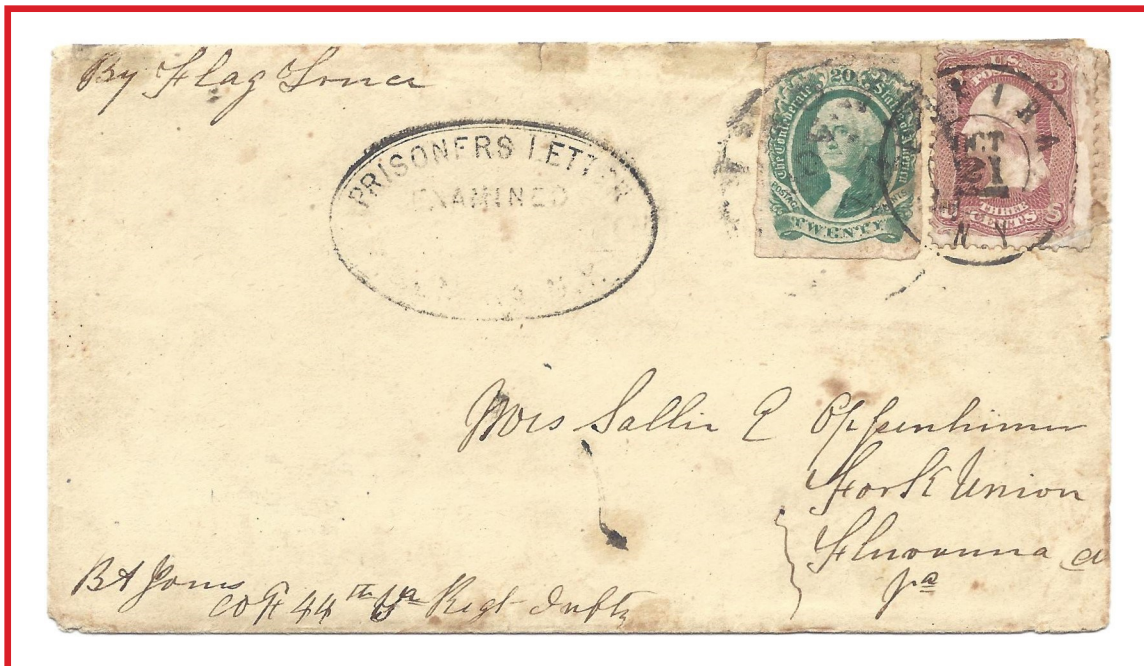 By Flag Truce
PRISONERS LETTER
EXAMINED
N.Y.
The Confederate States of America
20
POSTAGE
TWENTY
U.S.
POSTAGE
3
THREE
CENTS
ELMIRA
OCT
21
N.Y.
Miss Sallie E Oppenhimer
Fork Union
Fluvanna Co
Va
B A Jones
CO F 44th Va Regt Inftry